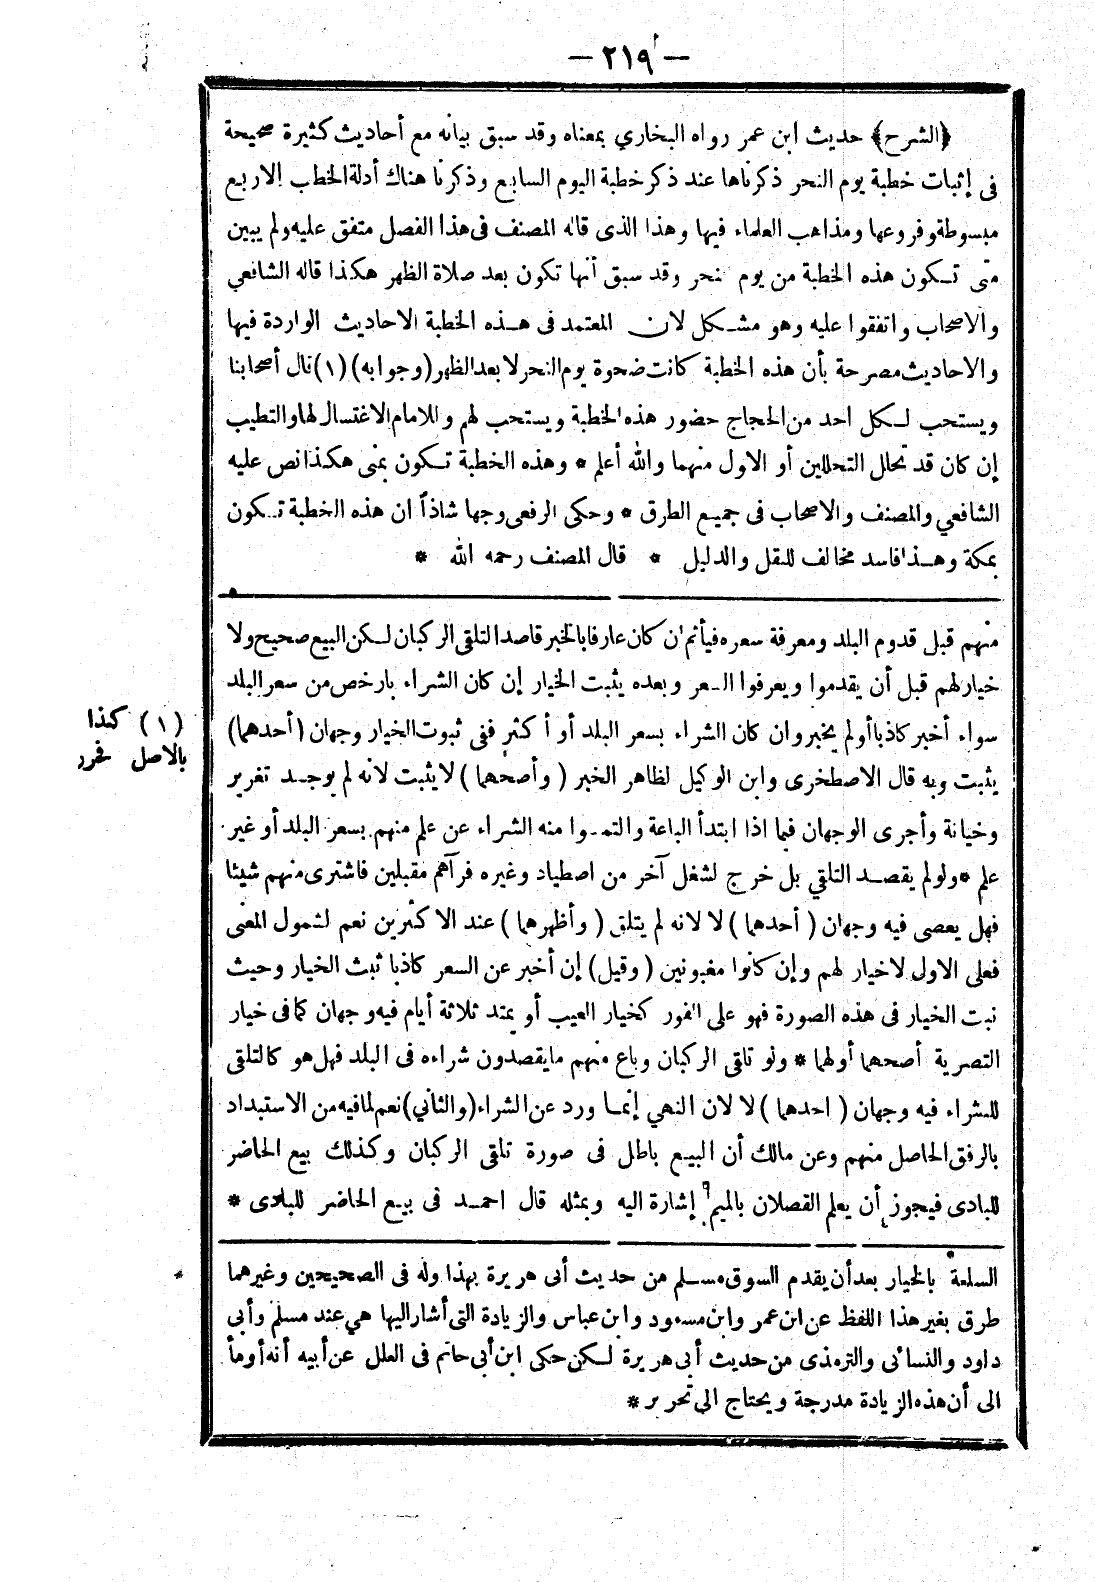 — ٢١٩ —
﴿الشرح﴾ حديث ابن عمر رواه البخاري بمعناه وقد سبق بيانه مع أحاديث كثيرة صحيحة
فى إثبات خطبة يوم النحر ذكرناها عند ذكر خطبة اليوم السابع وذكرنا هناك أدلة الخطب الاربع
مبسوطة وفروعها ومذاهب العلماء فيها وهذا الذى قاله المصنف فى هذا الفصل متفق عليه ولم يبين
متى تكون هذه الخطبة من يوم النحر وقد سبق أنها تكون بعد صلاة الظهر هكذا قاله الشافعي
والاصحاب واتفقوا عليه وهو مشكل لان المعتمد فى هذه الخطبة الاحاديث الواردة فيها
والاحاديث مصرحة بأن هذه الخطبة كانت ضحوة يوم النحر لا بعد الظهر (وجوابه) (١) قال أصحابنا
ويستحب لكل احد من الحجاج حضور هذه الخطبة ويستحب لهم وللامام الاغتسال لها والتطيب
إن كان قد تحلل التحللين أو الاول منهما والله أعلم * وهذه الخطبة تكون بمنى هكذا نص عليه
الشافعي والمصنف والاصحاب فى جميع الطرق * وحكى الرفعى وجها شاذاً ان هذه الخطبة تكون
بمكة وهذا فاسد مخالف للنقل والدليل * قال المصنف رحمه الله *
منهم قبل قدوم البلد ومعرفة سعره فيأثم ان كان عارفا بالخبر قاصدا لتلقى الركبان لكن البيع صحيح ولا
خيار لهم قبل أن يقدموا ويعرفوا السعر وبعده يثبت الخيار إن كان الشراء بارخص من سعر البلد
سواء أخبر كاذبا أو لم يخبر وان كان الشراء بسعر البلد أو أكثر ففى ثبوت الخيار وجهان (أحدهما)
يثبت وبه قال الاصطخرى وابن الوكيل لظاهر الخبر (وأصحهما) لا يثبت لانه لم يوجد تغرير
وخيانة وأجرى الوجهان فيما اذا ابتدأ الباعة والتمسوا منه الشراء عن علم منهم بسعر البلد أو غير
علم * ولو لم يقصد التلقي بل خرج لشغل آخر من اصطياد وغيره فرآهم مقبلين فاشترى منهم شيئا
فهل يعصى فيه وجهان (أحدهما) لا لانه لم يتلق (وأظهرهما) عند الاكثرين نعم لشمول المعنى
فعلى الاول لا خيار لهم وإن كانوا مغبونين (وقيل) إن أخبر عن السعر كاذبا ثبت الخيار وحيث
ثبت الخيار فى هذه الصورة فهو على الفور كخيار العيب أو يمتد ثلاثة أيام فيه وجهان كما فى خيار
التصرية أصحهما أولهما * ولو تلقى الركبان وباع منهم ما يقصدون شراءه فى البلد فهل هو كالتلقى
للشراء فيه وجهان (احدهما) لا لان النهي إنما ورد عن الشراء (والثاني) نعم لما فيه من الاستبداد
بالرفق الحاصل منهم وعن مالك أن البيع باطل فى صورة تلقى الركبان وكذلك بيع الحاضر
للبادى فيجوز أن يعلم الفصلان بالميم إشارة اليه وبمثله قال احمد فى بيع الحاضر للبادى *
السلعة بالخيار بعد أن يقدم السوق مسلم من حديث أبى هريرة بهذا وله فى الصحيحين وغيرهما
طرق بغير هذا اللفظ عن ابن عمر وابن مسعود وابن عباس والزيادة التى أشار اليها هي عند مسلم وأبى
داود والنسائى والترمذى من حديث أبى هريرة لكن حكى ابن أبى حاتم فى العلل عن أبيه أنه أومأ
الى أن هذه الزيادة مدرجة ويحتاج الى تحرير *
(١) كذا
بالاصل فحرر